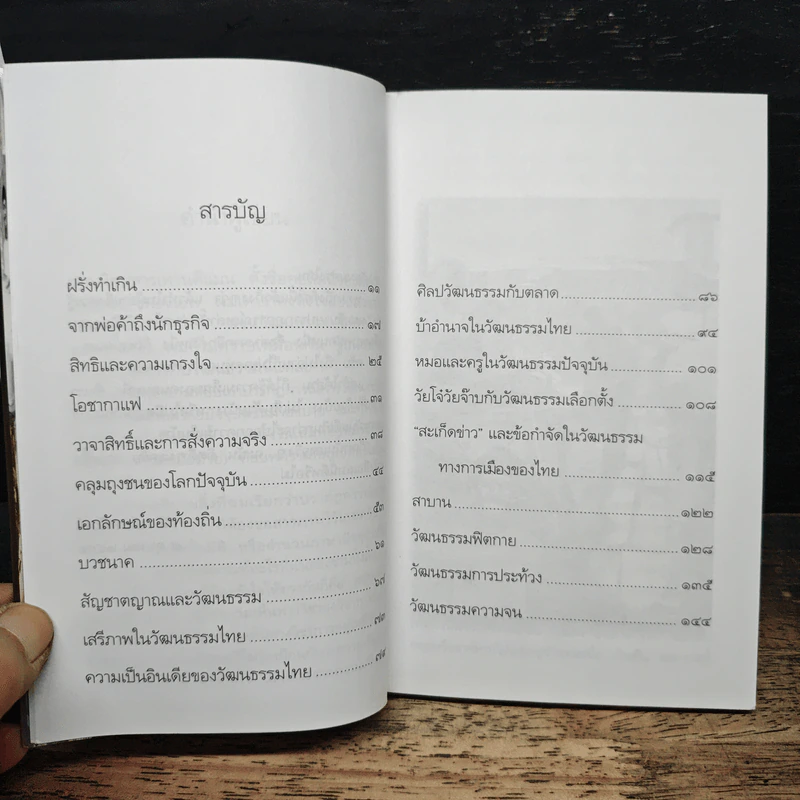 สารบัญ
ฝรั่งทำเกิน ๑๑
จากพ่อค้าถึงนักธุรกิจ ๑๗
สิทธิและความเกรงใจ ๒๕
โอชากาแฟ ๓๑
วาจาสิทธิ์และการสั่งความจริง ๓๘
คลุมถุงชนของโลกปัจจุบัน ๔๔
เอกลักษณ์ของท้องถิ่น ๕๓
บวชนาค ๖๑
สัญชาตญาณและวัฒนธรรม ๖๗
เสรีภาพในวัฒนธรรมไทย ๗๓
ความเป็นอินเดียของวัฒนธรรมไทย
ศิลปวัฒนธรรมกับตลาด ๘๖
บ้าอำนาจในวัฒนธรรมไทย ๙๔
หมอและครูในวัฒนธรรมปัจจุบัน ๑๐๑
วัยโจ๋วัยจ๊าบกับวัฒนธรรมเลือกตั้ง ๑๐๘
“สะเก็ดข่าว” และข้อกำจัดในวัฒนธรรม
ทางการเมืองของไทย ๑๑๕
สาบาน ๑๒๒
วัฒนธรรมฟิตกาย ๑๒๘
วัฒนธรรมการประท้วง ๑๓๕
วัฒนธรรมความจน ๑๔๔